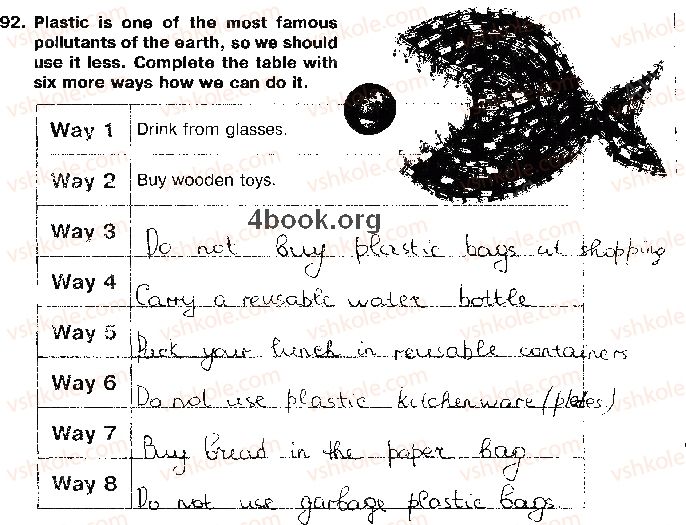 92. Plastic is one of the most famous
pollutants of the earth, so we should
use it less. Complete the table with
six more ways how we can do it.
Way 1 Drink from glasses.
Way 2 Buy wooden toys.
4book.org
Way 3 Do not buy plastic bags at shopping
Way 4 Carry a reusable water bottle
Way 5 Pack your lunch in reusable containers
Way 6 Do not use plastic kitchenware (plates)
Way 7 Buy bread in the paper bag
Way 8 Do not use garbage plastic bags
vshkole.com